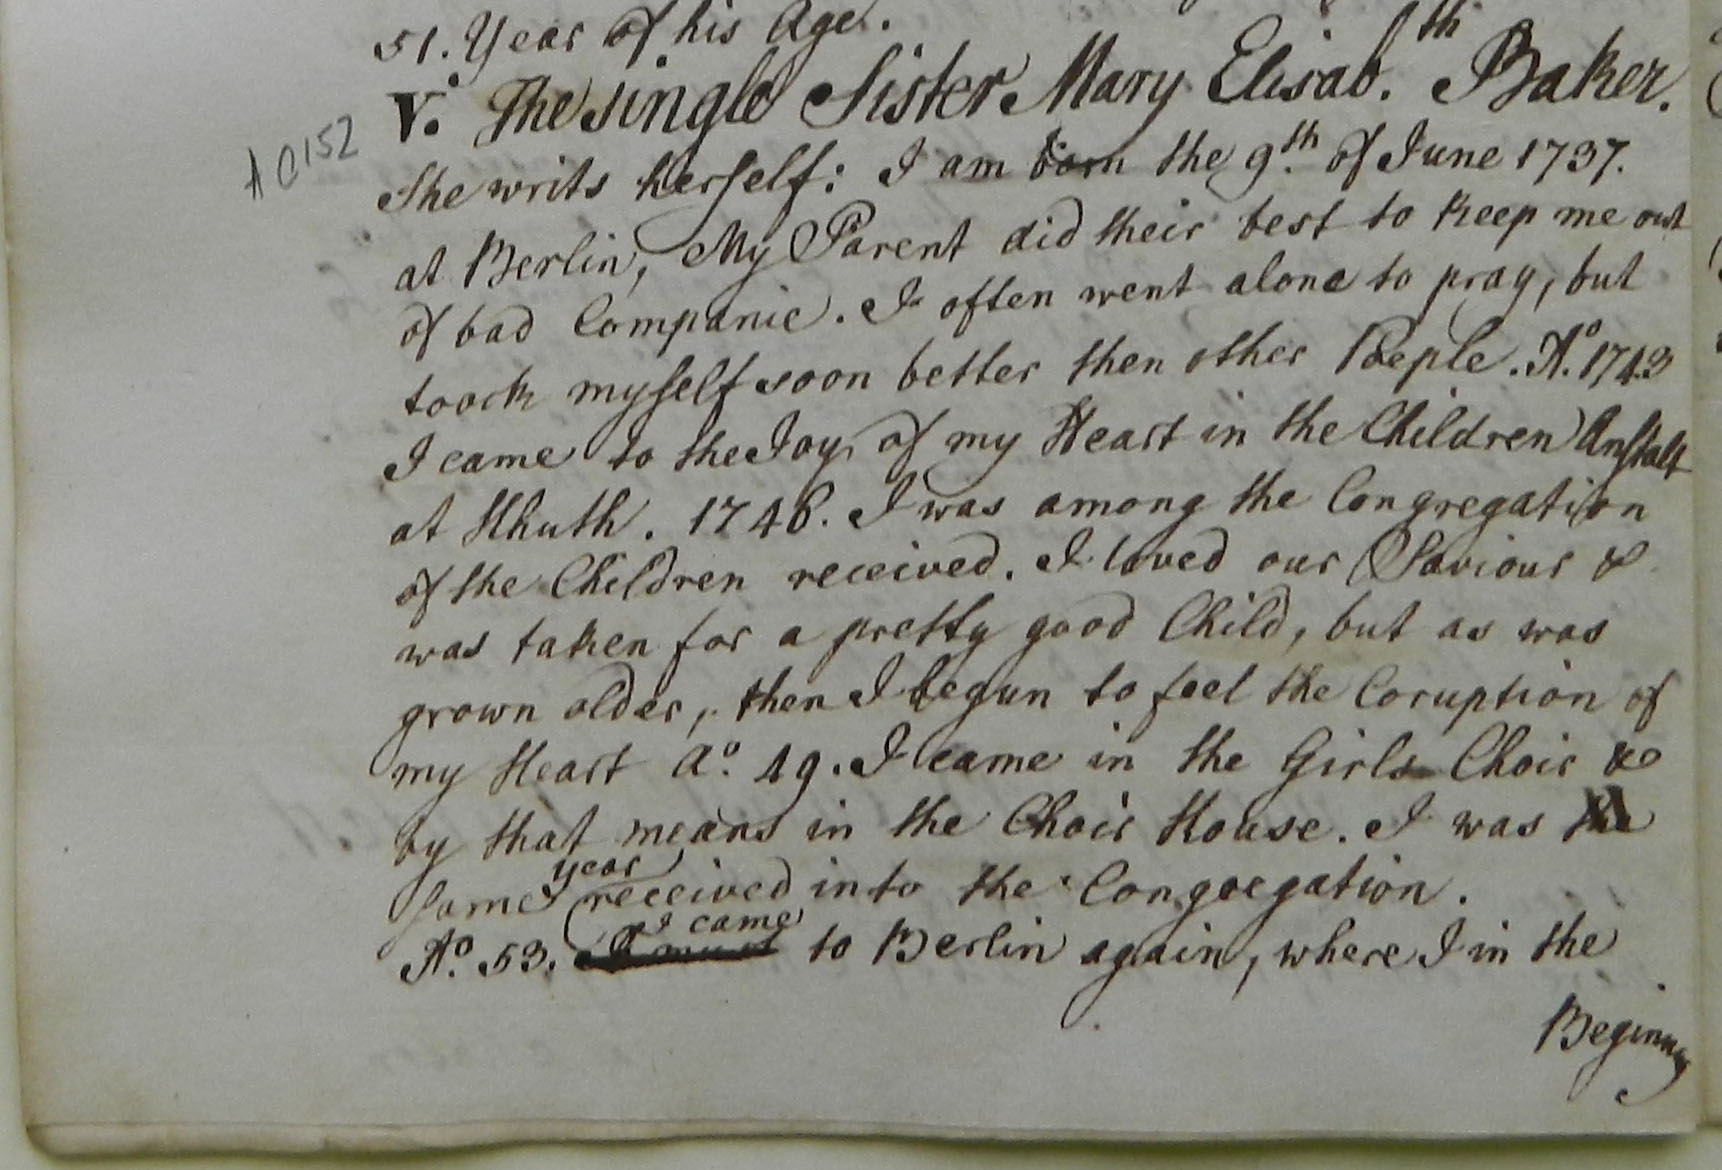 51. Year of his Age.
V. The single Sister Mary Elisab.th Baker.
A0152
She writs herself: I am born the 9th of June 1737.
at Berlin, My Parent did their best to keep me out
of bad Companie. I often went alone to pray, but
toock myself soon better then other Poeple. Ao. 1743
I came to the Joy of my Heart in the Children Anstalt
at Hhuth. 1746. I was among the Congregation
of the Children received. I loved our Saviour &
was taken for a pretty good Child, but as was
grown older, then I begun to feel the Coruption of
my Heart ao. 49. I came in the Girls Choir &
by that means in the Choir House. I was the
same year received into the Congregation.
Ao. 53. I came to Berlin again, where I in the
Beginning